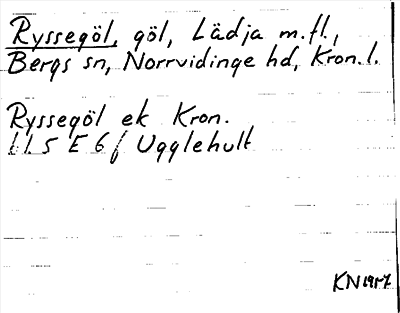 Ryssegöl, göl, Lädja m.fl.,
Bergs sn, Norrvidinge hd, Kron.l.
Ryssegöl ek Kron.
5 E 6f Ugglehult